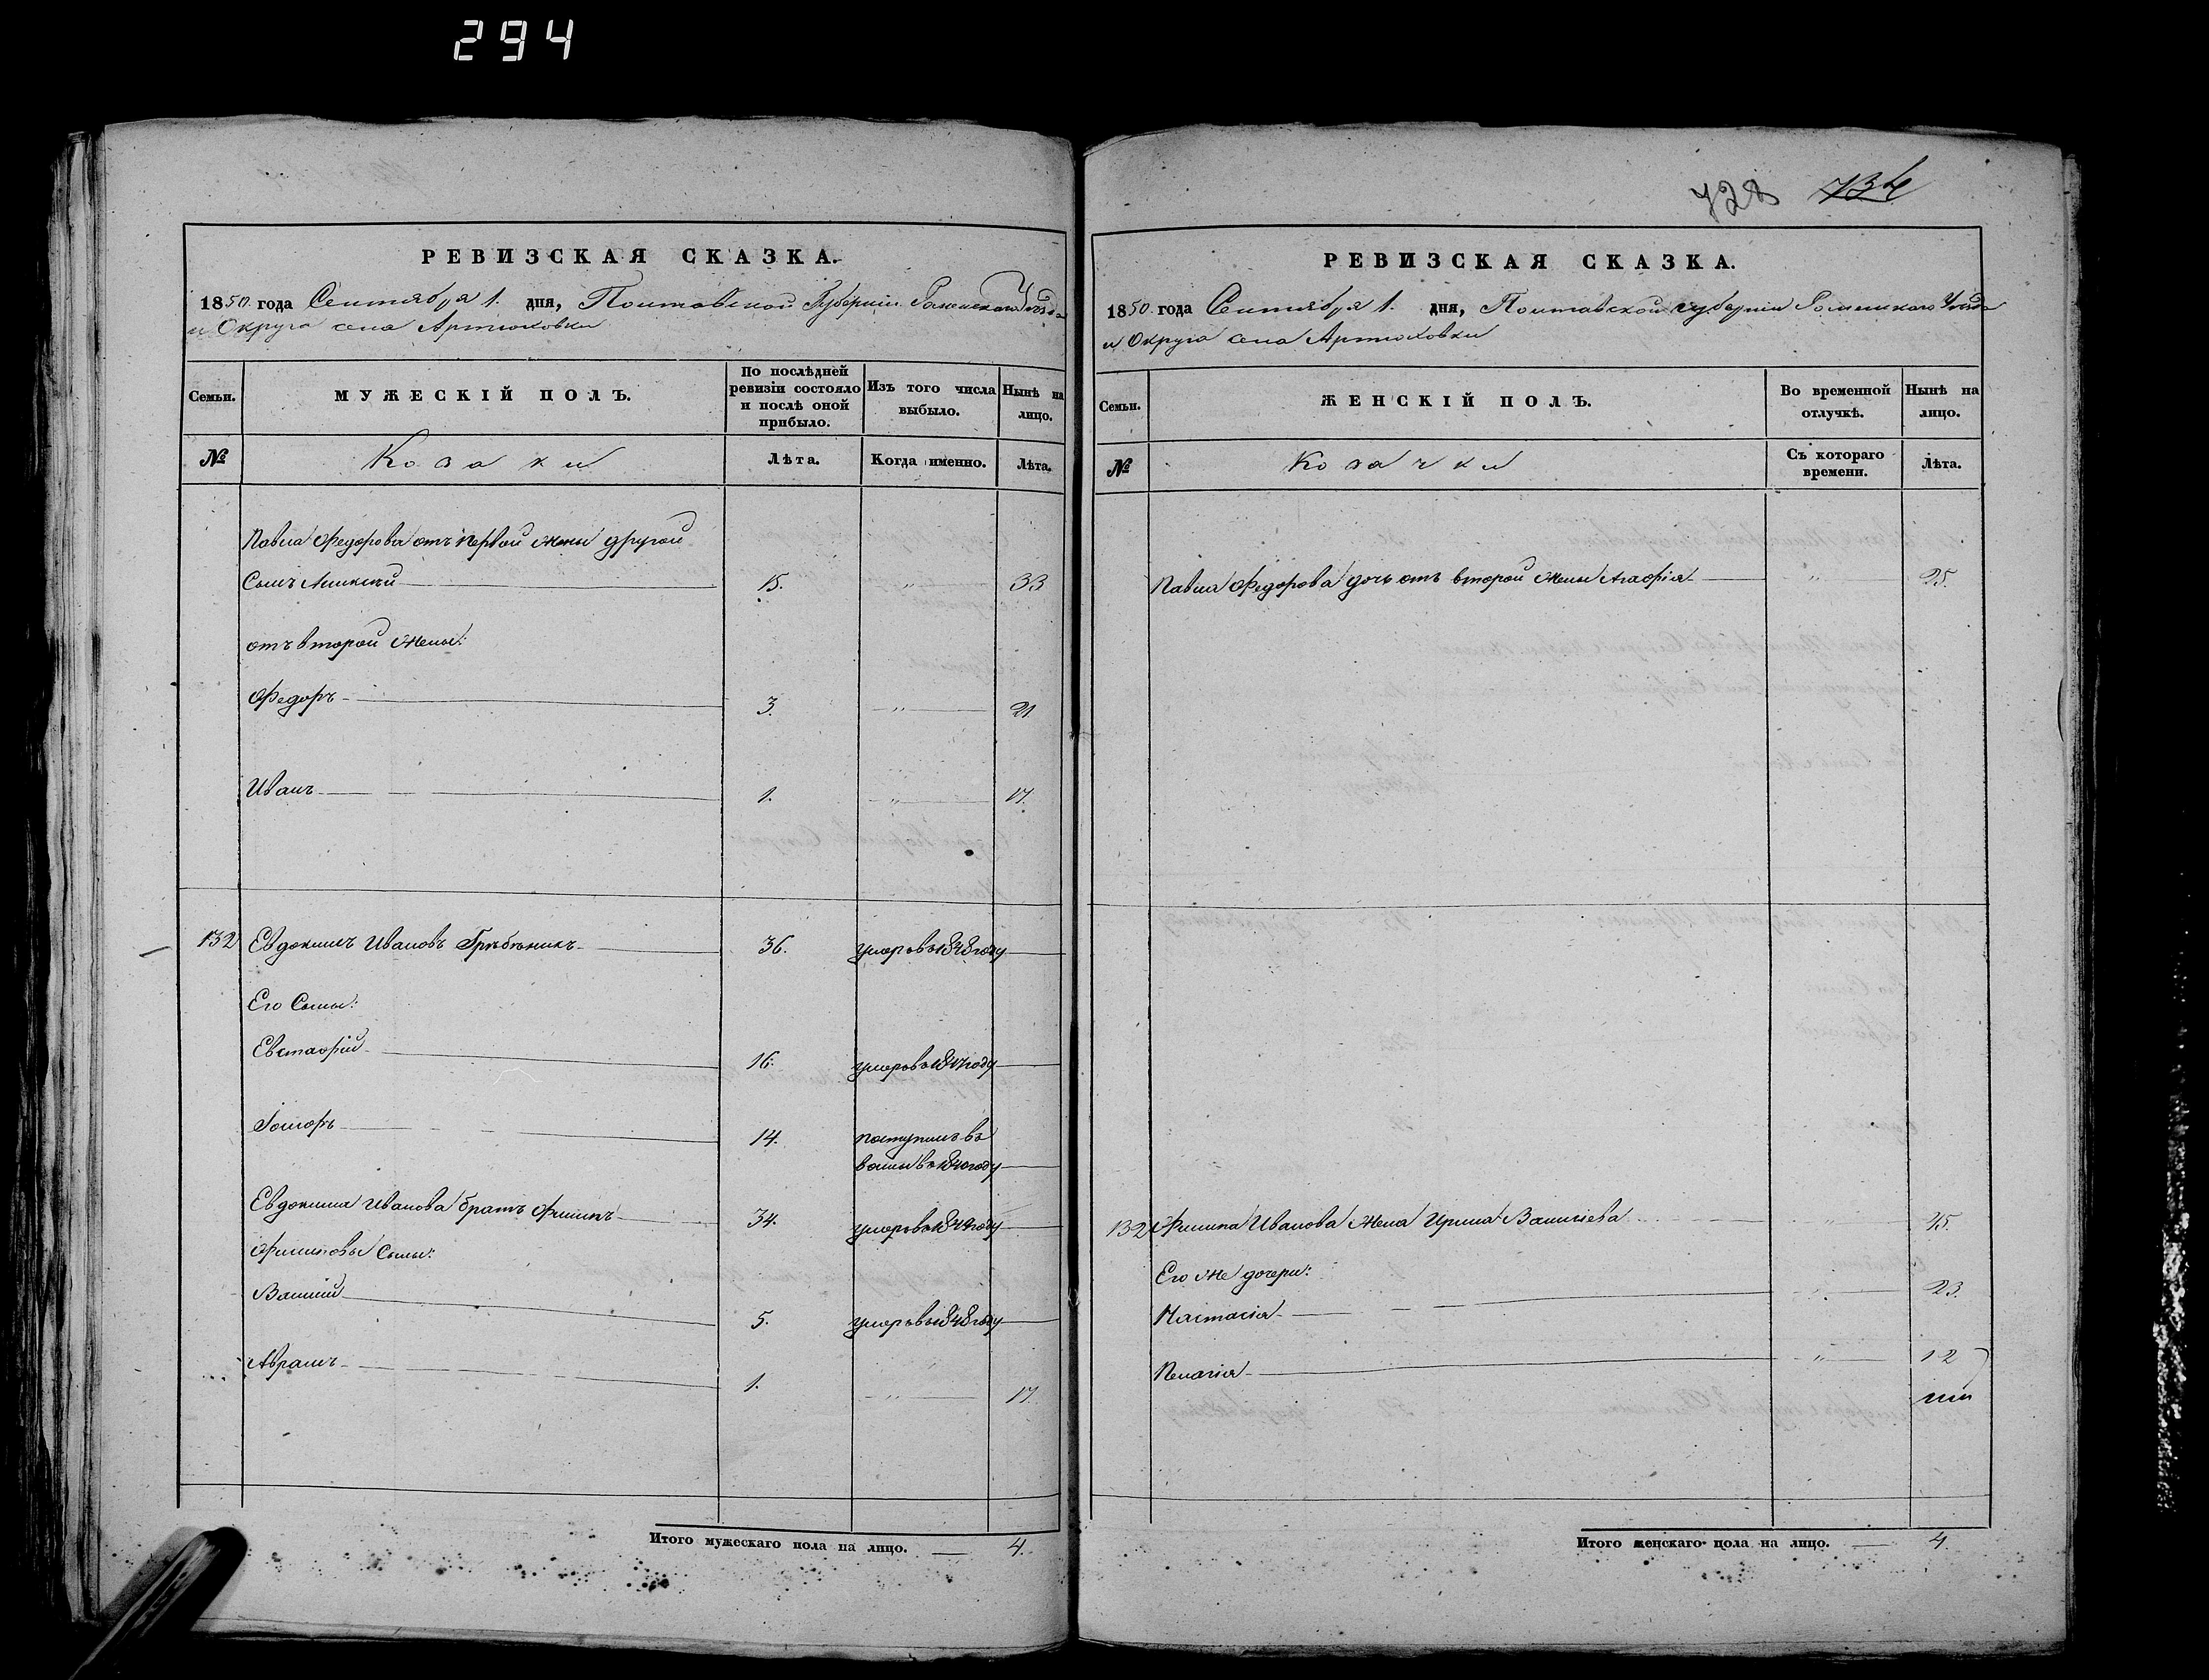 294
728 734
РЕВИЗСКАЯ СКАЗКА.
1850 года Сентября 1. дня, Полтавской Губерніи Роменскаго Уѣзда
и Округа села Артюховки
Семьи.
МУЖЕСКІЙ ПОЛЪ.
По послѣдней ревизіи состояло и послѣ оной прибыло.
Изъ того числа выбыло.
Нынѣ на лицо.
№
Козаки
Лѣта.
Когда именно.
Лѣта.
Павла Федорова отъ первой жены другой
Сынъ Алексѣй 15. " 33
отъ второй жены:
Федоръ 3. " 21
Иванъ 1. " 17.
132 Евдокимъ Ивановъ Гребѣникъ 36. умеръ въ 1848 году
Его Сыны:
Евстафій 16. умеръ въ году
14. поступилъ въ
въ 1840 году
Евдокима Иванова братъ Филипъ 34. умеръ въ году
Филиповы Сыны:
Василій 5. умеръ въ 1848 году
Аврамъ 1. " 17.
Итого мужескаго пола на лицо. 4.
РЕВИЗСКАЯ СКАЗКА.
1850 года Сентября 1. дня, Полтавской губерніи Роменскаго Уѣзда
и Округа села Артюховки
Семьи.
ЖЕНСКІЙ ПОЛЪ.
Во временной отлучкѣ.
Нынѣ на лицо.
№
Козачки
Съ котораго времени.
Лѣта.
Павла Федорова дочь отъ второй жены Агафія " 25.
132 Филипа Иванова жена Ирина Васильева " 45.
Его же дочери:
Настасія " 23.
Пелагія " 12
Итого женскаго пола на лицо. 4.